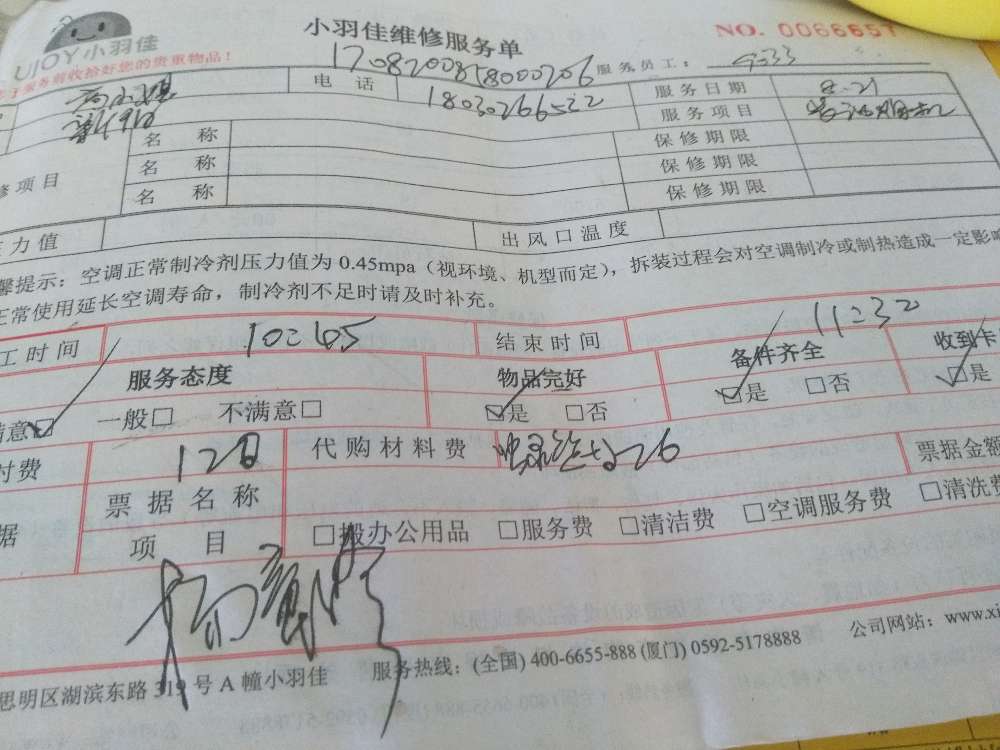 UJOY小羽佳
小羽佳维修服务单
NO. 0066657
服务前收拾好您的贵重物品！
17082008158000206
服务员工：
电 话 18030266522 服务日期 8.21
服务项目
名 称 保修期限
修项目 名 称 保修期限
名 称 保修期限
压力值 出风口温度
馨提示：空调正常制冷剂压力值为 0.45mpa（视环境、机型而定），拆装过程会对空调制冷或制热造成一定影响
正常使用延长空调寿命，制冷剂不足时请及时补充。
工时间 10:45 结束时间 11:32
服务态度 物品完好 备件齐全 收到卡
满意☑ 一般□ 不满意□ ☑是 □否 ☑是 □否 ☑是
付费 代购材料费 26 票据金额
据 票据名称
项 目 □搬办公用品 □服务费 □清洁费 □空调服务费 □清洗费
思明区湖滨东路 319 号 A 幢小羽佳 服务热线：(全国) 400-6655-888 (厦门) 0592-5178888 公司网站：www.xi